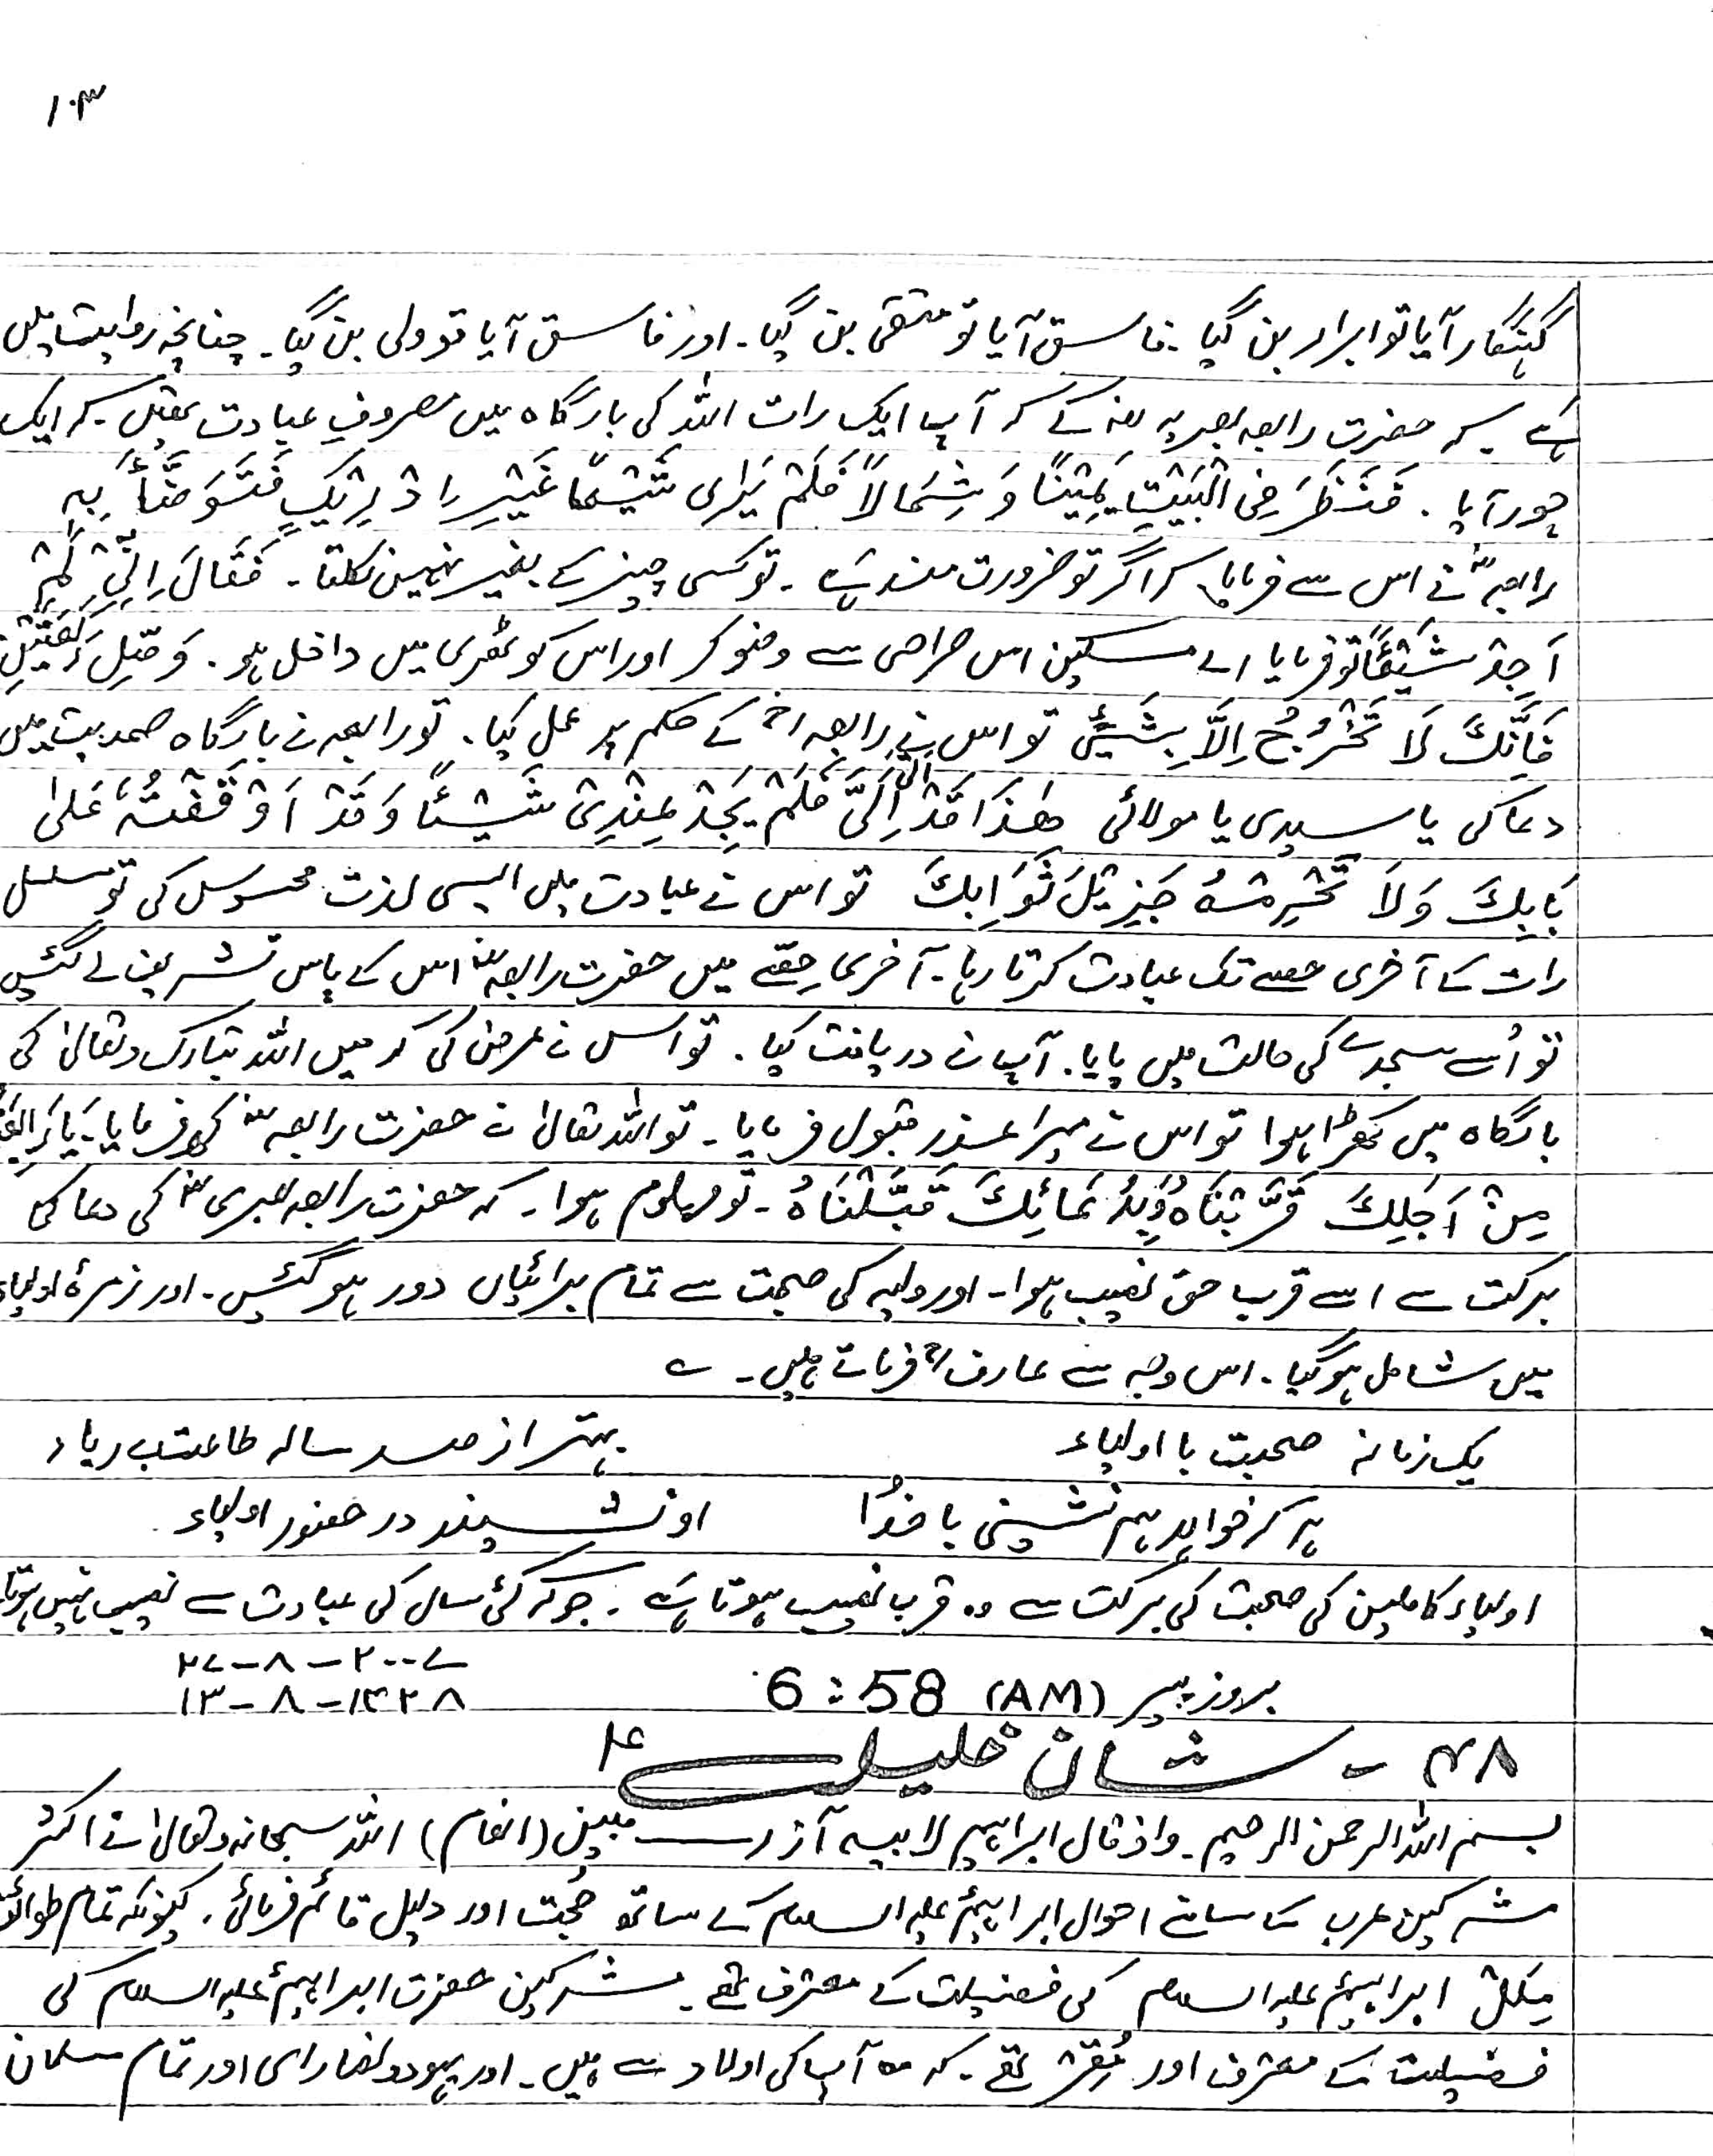 ۱۰۳
گنہگار آیا تو ابرار بن گیا۔ فاسق آیا تو متقی بن گیا۔ اور فاسق آیا تو ولی بن گیا۔ چنانچہ روایت میں
ہے کہ حضرت رابعہ بصریہ کے کہ آپ ایک رات اللہ کی بارگاہ میں مصروفِ عبادت تھیں۔ کہ ایک
چور آیا۔ فَنَظَرَ فِی الْبَیْتِ یَمِیْنًا وَ شِمَالًا فَلَمْ یَرٰی شَیْئًا غَیْرِ فَتَوَضَّأَ بِہٖ
رابعہ نے اس سے فرمایا کہ اگر تو ضرورت مند ہے۔ تو کسی چیز کے بغیر نہیں نکلتا۔ فَقَالَ اِنِّیْ لَمْ
اَجِدْ شَیْئًا تو فرمایا اے مسکین اس صراحی سے وضو کر اور اس کوٹھری میں داخل ہو۔ وَصَلِّ رَکْعَتَیْنِ
فَاِنَّکَ لَا تَخْرُجُ اِلَّا بِشَیْئٍ تو اس نے رابعہ کے حکم پر عمل کیا۔ تو رابعہ نے بارگاہ صمدیت میں
دعا کی یا سیدی یا مولائی ھٰذَا قَدْ اَتٰی اِلَیَّ فَلَمْ یَجِدْ عِنْدِیْ شَیْئًا وَقَدْ اَوْقَفْتُہٗ عَلٰی
بَابِکَ وَلَا تَحْرِمْہُ جَزِیْلَ ثَوَابِکَ تو اس نے عبادت میں ایسی لذت محسوس کی تو مسلسل
رات کے آخری حصے تک عبادت کرتا رہا۔ آخری حصّے میں حضرت رابعہ اس کے پاس تشریف لے گئیں
تو اُسے سجدے کی حالت میں پایا۔ آپ نے دریافت کیا۔ تو اس نے عرض کی کہ میں اللہ تبارک وتعالیٰ کی
بارگاہ میں کھڑا ہوا تو اس نے میرا عذر قبول فرمایا۔ تو اللہ تعالیٰ نے حضرت رابعہ کو فرمایا۔ یَا رَابِعَۃ
مِنْ اَجَلِکَ قَرَّبْنَاہُ وَبِدُعَائِکَ قَبَّلْنَاہُ۔ تو معلوم ہوا۔ کہ حضرت رابعہ بصری کی دعا کی
برکت سے اسے قرب حق نصیب ہوا۔ اور ولیہ کی صحبت سے تمام برائیاں دور ہو گئیں۔ اور زمرۂ اولیاء
میں شامل ہو گیا۔ اس وجہ سے عارف فرماتے ہیں۔ ؎
یک زمانہ صحبت با اولیاء بہتر از صد سالہ طاعت بے ریاء
ہر کہ خواہد ہم نشینی با خدُا او نشیند در حضور اولیاء
اولیاء کاملین کی صحبت کی برکت سے وہ قرب نصیب ہوتا ہے۔ جو کہ کئی سال کی عبادت سے نصیب نہیں ہوتا
۲۷-۸-۲۰۰۷
بروز پیر 6:58 (AM) ۱۳-۸-۱۴۲۸
۴۸ - شان خلیل ؑ
بسم اللہ الرحمن الرحیم۔ واذ قال ابراہیم لابیہ آزر ــــ مبین (انعام) اللہ سبحانہ وتعالیٰ نے اکثر
مشرکین عرب کے سامنے احوال ابراہیمؑ علیہ السلام کے ساتھ حُجت اور دلیل قائم فرمائی۔ کیونکہ تمام طوائف
مِلل ابراہیمؑ علیہ السلام کی فضیلت کے معترف تھے۔ مشرکین حضرت ابراہیمؑ علیہ السلام کی
فضیلت کے معترف اور مُقر تھے۔ کہ وہ آپ کی اولاد سے ہیں۔ اور یہود و نصاریٰ اور تمام مسلمان